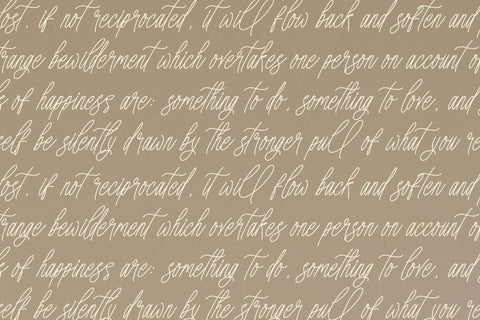 lost. if not reciprocated, it will flow back and soften and
trange bewilderment which overtakes one person on account of
s of happiness are: something to do, something to love, and
self be silently drawn by the stronger pull of what you re
lost. if not reciprocated, it will flow back and soften and
trange bewilderment which overtakes one person on account of
s of happiness are: something to do, something to love, and
self be silently drawn by the stronger pull of what you re